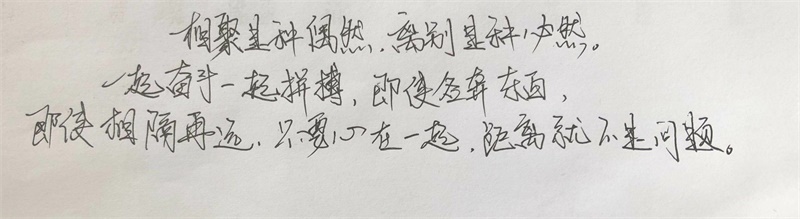 相聚是种偶然，离别是种必然。
一起奋斗一起拼搏，即使各奔东西，
即使相隔再远，只要心在一起，距离就不是问题。